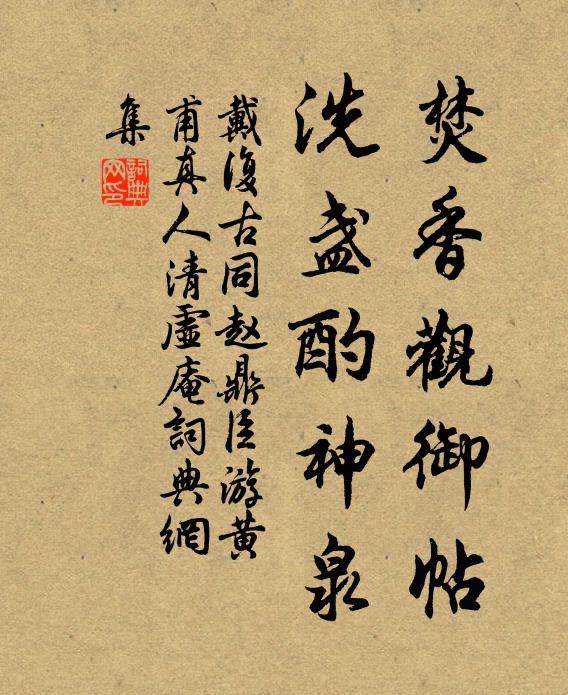 焚香觀御帖
洗盏酌神泉
戴復古同赵鼎臣游黄
甫真人清虛庵詞典網
集
詞典网印